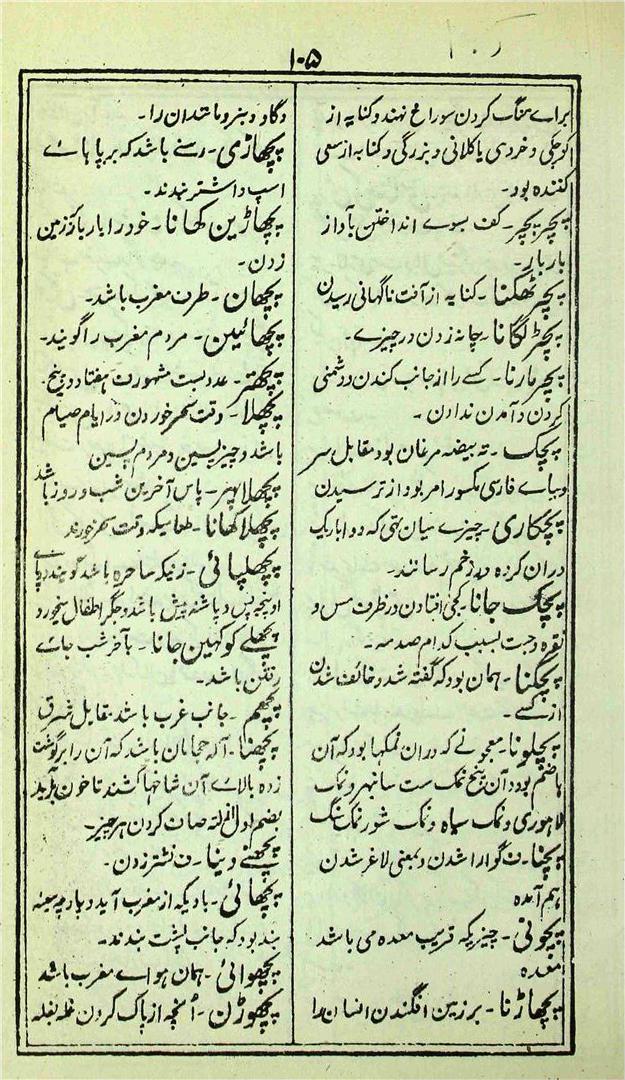 ۱۰۵
براے تنگ کردن سوراخ نہند و کنایہ از
کوچکی و خردی یا کلانی و بزرگی و کنایہ از سعی
کنندہ بود۔
پچر پچر۔ کف بسوے انداختن بآواز
باربار۔
پچر ٹھکنا۔ کنایہ از آفت ناگہانی رسیدن
پچڑ لگانا۔ چانہ زدن در چیزے۔
پچر مارنا۔ کسے را از جانب کندن و دشمنی
کردن و آمدن ندادن۔
پچک۔ تہ بیضہ مرغان بود مقابل سر
وبباے فارسی مکسور امر بود از ترسیدن
پچکاری۔ چیزے میان تہی کہ دوا باریک
دران کردہ در زخم رسانند۔
پچک جانا۔ کجی افتادن در ظرف مس و
نقرہ وجست بسبب کدام صدمہ۔
پچکنا۔ ہمان بود کہ گفتہ شد و خائف شدن
از کسے۔
پچلونا۔ معجونے کہ دران نمکہا بود کہ آن
ہاضم بود و آن پنج نمک ست سانبہر و نمک
لاہوری و نمک سیاہ و نمک شور نمک سنگ
پچنا۔ ف گوارا شدن و بمعنی لاغر شدن
ہم آمدہ
پچونی۔ چیزیکہ قریب معدہ می باشد
معدہ
پچھاڑنا۔ بر زمین افگندن انسان را
و گاو و بز و مانند ان را۔
پچھاڑی۔ رسنے باشد کہ بر پا ہاے
اسپ و اشتر بندند۔
پچھاڑین کھانا۔ خود را بار بار بر زمین
زدن۔
پچھان۔ طرف مغرب باشد۔
پچھائین۔ مردم مغرب را گویند۔
پچھتر۔ عددیست مشہور ت ہفتاد و پنج۔
پچھلا۔ وقت سحر خوردن در ایام صیام
باشد و چیز پسین و مردم پسین
پچھلا پہر۔ پاس آخرین شب و روز باشد
پچھلا کھانا۔ طعامیکہ وقت سحر خورند
پچھلپائی۔ زنیکہ ساحرہ باشد گویند پاے
او پنجہ پس و پاشنہ پیش باشد و جگر اطفال میخورد
پچھلے کو کہین جانا۔ بآخر شب جاے
رفتن باشد۔
پچھم۔ جانب غرب باشد مقابل شرق
پچھنا۔ آلہ حجامان باشد کہ آن را بر گوشت
زدہ بالاے آن شاخہا کشند تا خون برآید
بضم اول ف آلہ صاف کردن ہر چیز۔
پچھنے دینا۔ ف نشتر زدن۔
پچھائی۔ بادیکہ از مغرب آید و پارچہ سینہ
بند بود کہ جانب پشت بندند۔
پچھوائی۔ ہمان ہواے مغرب باشد
پچھوڑن۔ آنچہ از پاک کردن غلہ بغلہ